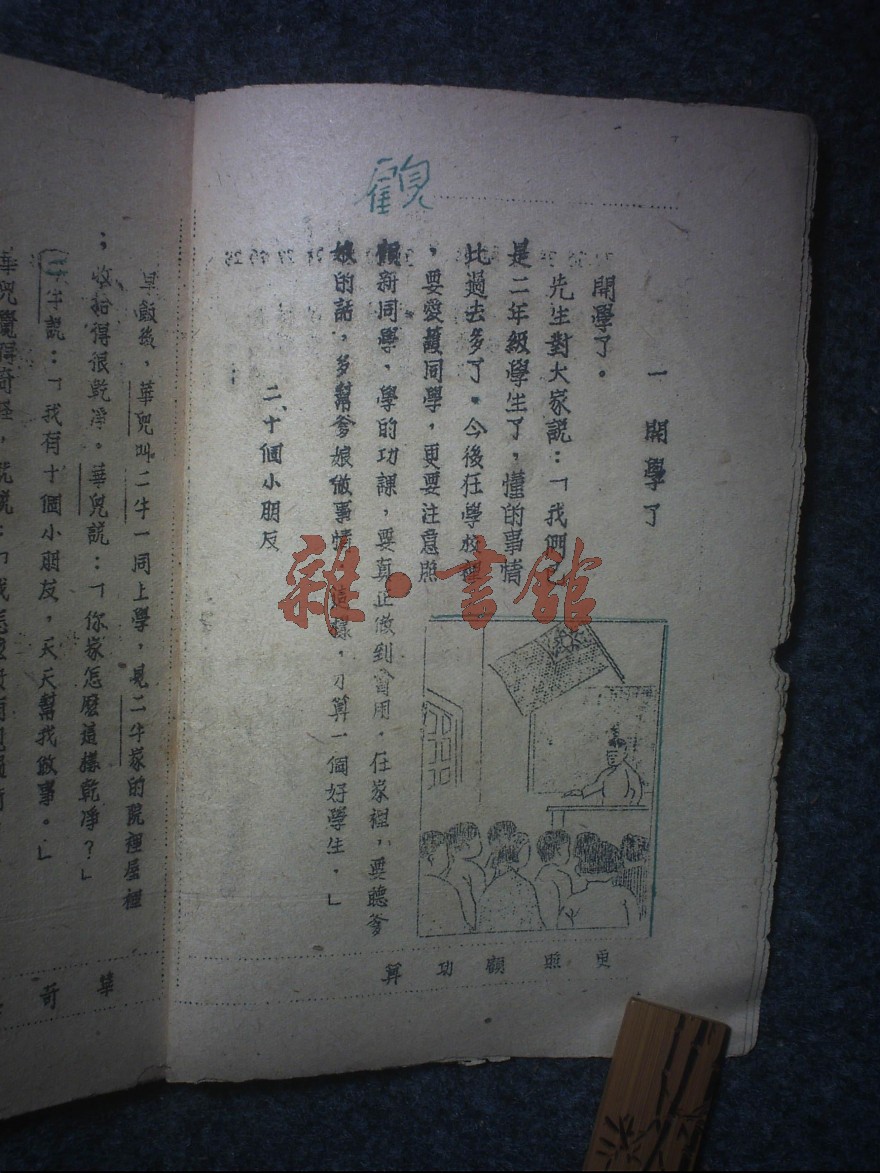 顧
一 開學了
開學了。
先生對大家説：「我們已
是二年級學生了，懂的事情
比過去多了。今後在學校裡
，要愛護同學，更要注意照
顧新同學，學的功課，要真正做到會用。在家裡，要聽爹
娘的話，多幫爹娘做事情，這樣，才算一個好學生。」
更 照 顧 功 算
二、十個小朋友
早飯後，華兒叫二牛一同上學，見二牛家的院裡屋裡
；收拾得很乾淨。華兒説：「你家怎麽這樣乾淨？」
二牛説：「我有十個小朋友，天天幫我做事。」
華兒覺得奇怪，就説：「我怎麽没有見過
華 奇
雜·書館